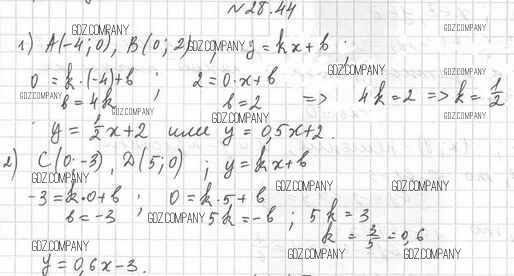 №28.44
GDZ.COMPANY GDZ.COMPANY
1) A(-4;0), B(0;2) GDZ.COMPANY, y=kx+b
GDZ.COMPANY GDZ.COMPANY
0=k·(-4)+b ; 2=0·x+b
GDZ.COMPANY b=4k GDZ.COMPANY b=2 => 4k=2 => k=1/2
GDZ.COMPANY GDZ.COMPANY
y=1/2x+2 или y=0,5x+2.
2) C(0;-3), D(5;0) ; y=kx+b
GDZ.COMPANY GDZ.COMPANY GDZ.COMPANY
-3=k·0+b ; 0=k·5+b
b=-3 GDZ.COMPANY 5k=-b ; 5k=3
k=3/5=0,6
GDZ.COMPANY GDZ.COMPANY GDZ.COMPANY
y=0,6x-3.